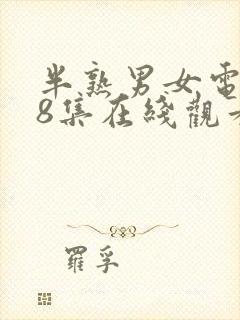 半熟男女電
8集在綫觀
羅孚